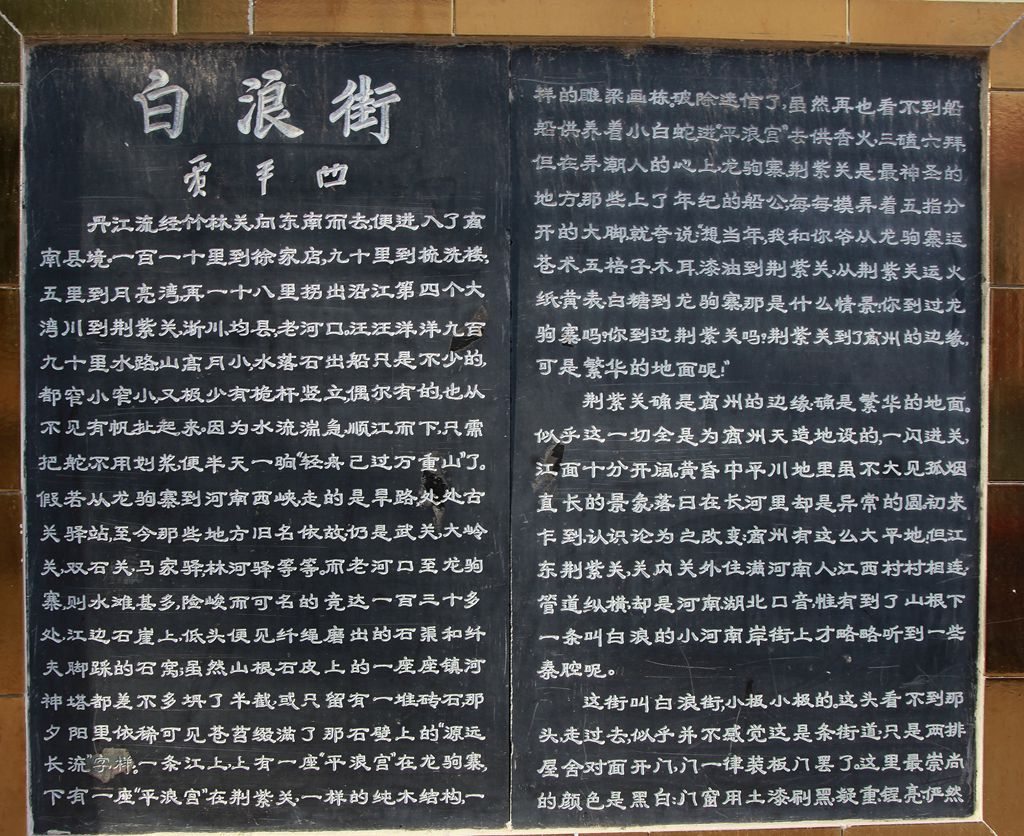 白浪街
贾平凹
丹江流经竹林关,向东南而去,便进入了商
南县境,一百一十里到徐家店,九十里到梳洗楼,
五里到月亮湾,再一十八里拐出沿江第四个大
湾川到荆紫关,淅川,均县,老河口。汪汪洋洋九百
九十里水路,山高月小,水落石出,船只是不少的,
都窄小窄小,又极少有桅杆竖立,偶尔有的,也从
不见有帆扯起来。因为水流湍急,顺江而下,只需
把舵,不用划桨,便半天一晌"轻舟已过万重山"了。
假若从龙驹寨到河南西峡走的是旱路,处处古
关驿站,至今那些地方旧名依故,仍是武关,大岭
关,双石关,马家驿,林河驿等等。而老河口至龙驹
寨,则水滩甚多,险峻而可名的竟达一百三十多
处,江边石崖上,低头便见纤绳磨出的石渠和纤
夫脚踩的石窝;虽然山根石皮上的一座座镇河
神塔都差不多坍了半截,或只留有一堆砖石,那
夕阳里依稀可见苍苔缀满了那石壁上的"源远
长流"字样。一条江上,上有一座"平浪宫"在龙驹寨,
下有一座"平浪宫"在荆紫关,一样的纯木结构,一
样的雕梁画栋。破除迷信了,虽然再也看不到船
船供养着小白蛇,进"平浪宫"去供香火,三磕六拜,
但在弄潮人的心上,龙驹寨,荆紫关是最神圣的
地方。那些上了年纪的船公,每每摸弄着五指分
开的大脚,就夸说:"想当年,我和你爷从龙驹寨运
苍术,五棓子,木耳,漆油到荆紫关,从荆紫关运火
纸,黄表,白糖到龙驹寨,那是什么情景!你到过龙
驹寨吗?你到过荆紫关吗?荆紫关到了商州的边缘,
可是繁华的地面呢!"
荆紫关确是商州的边缘,确是繁华的地面。
似乎这一切全是为商州天造地设的,一闪进关,
江面十分开阔,黄昏中平川地里虽不大见孤烟
直长的景象,落日在长河里却是异常的圆。初来
乍到,认识论为之改变:商州有这么大平地!但江
东荆紫关,关内关外住满河南人,江西村村相连,
管道纵横,却是河南,湖北口音,惟有到了山根下
一条叫白浪的小河南岸街上,才略略听到一些
秦腔呢。
这街叫白浪街,小极小极的。这头看不到那
头,走过去,似乎并不感觉这是条街道,只是两排
屋舍对面开门,门一律装板门罢了。这里最崇尚
的颜色是黑白:门窗用土漆刷黑,凝重,锃亮,俨然